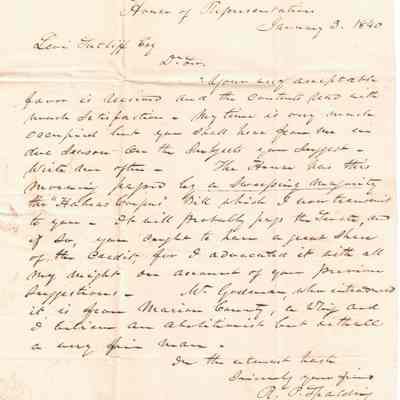 House of Representatives
January 3. 1840
Levi Sutliff Esq
Dr Sir.
Your very acceptable
favor is received and the contents read with
much satisfaction - My time is very much
occupied but you shall hear from me in
due season on the subjects you suggest -
Write me often - The House has this
morning passed by a sweeping majority
the "Habeas Corpus" Bill which I now transmit
to you - It will probably pass the Senate, and
if so, you ought to have a great share
of the credit, for I advocated it with all
my might on account of your previous
suggestions - Mr Godman, who introduced
it is from Marion County, a Whig and
I believe an abolitionist but withall
a very fine man -
In the utmost haste
Sincerely your friend
R. P. Spalding